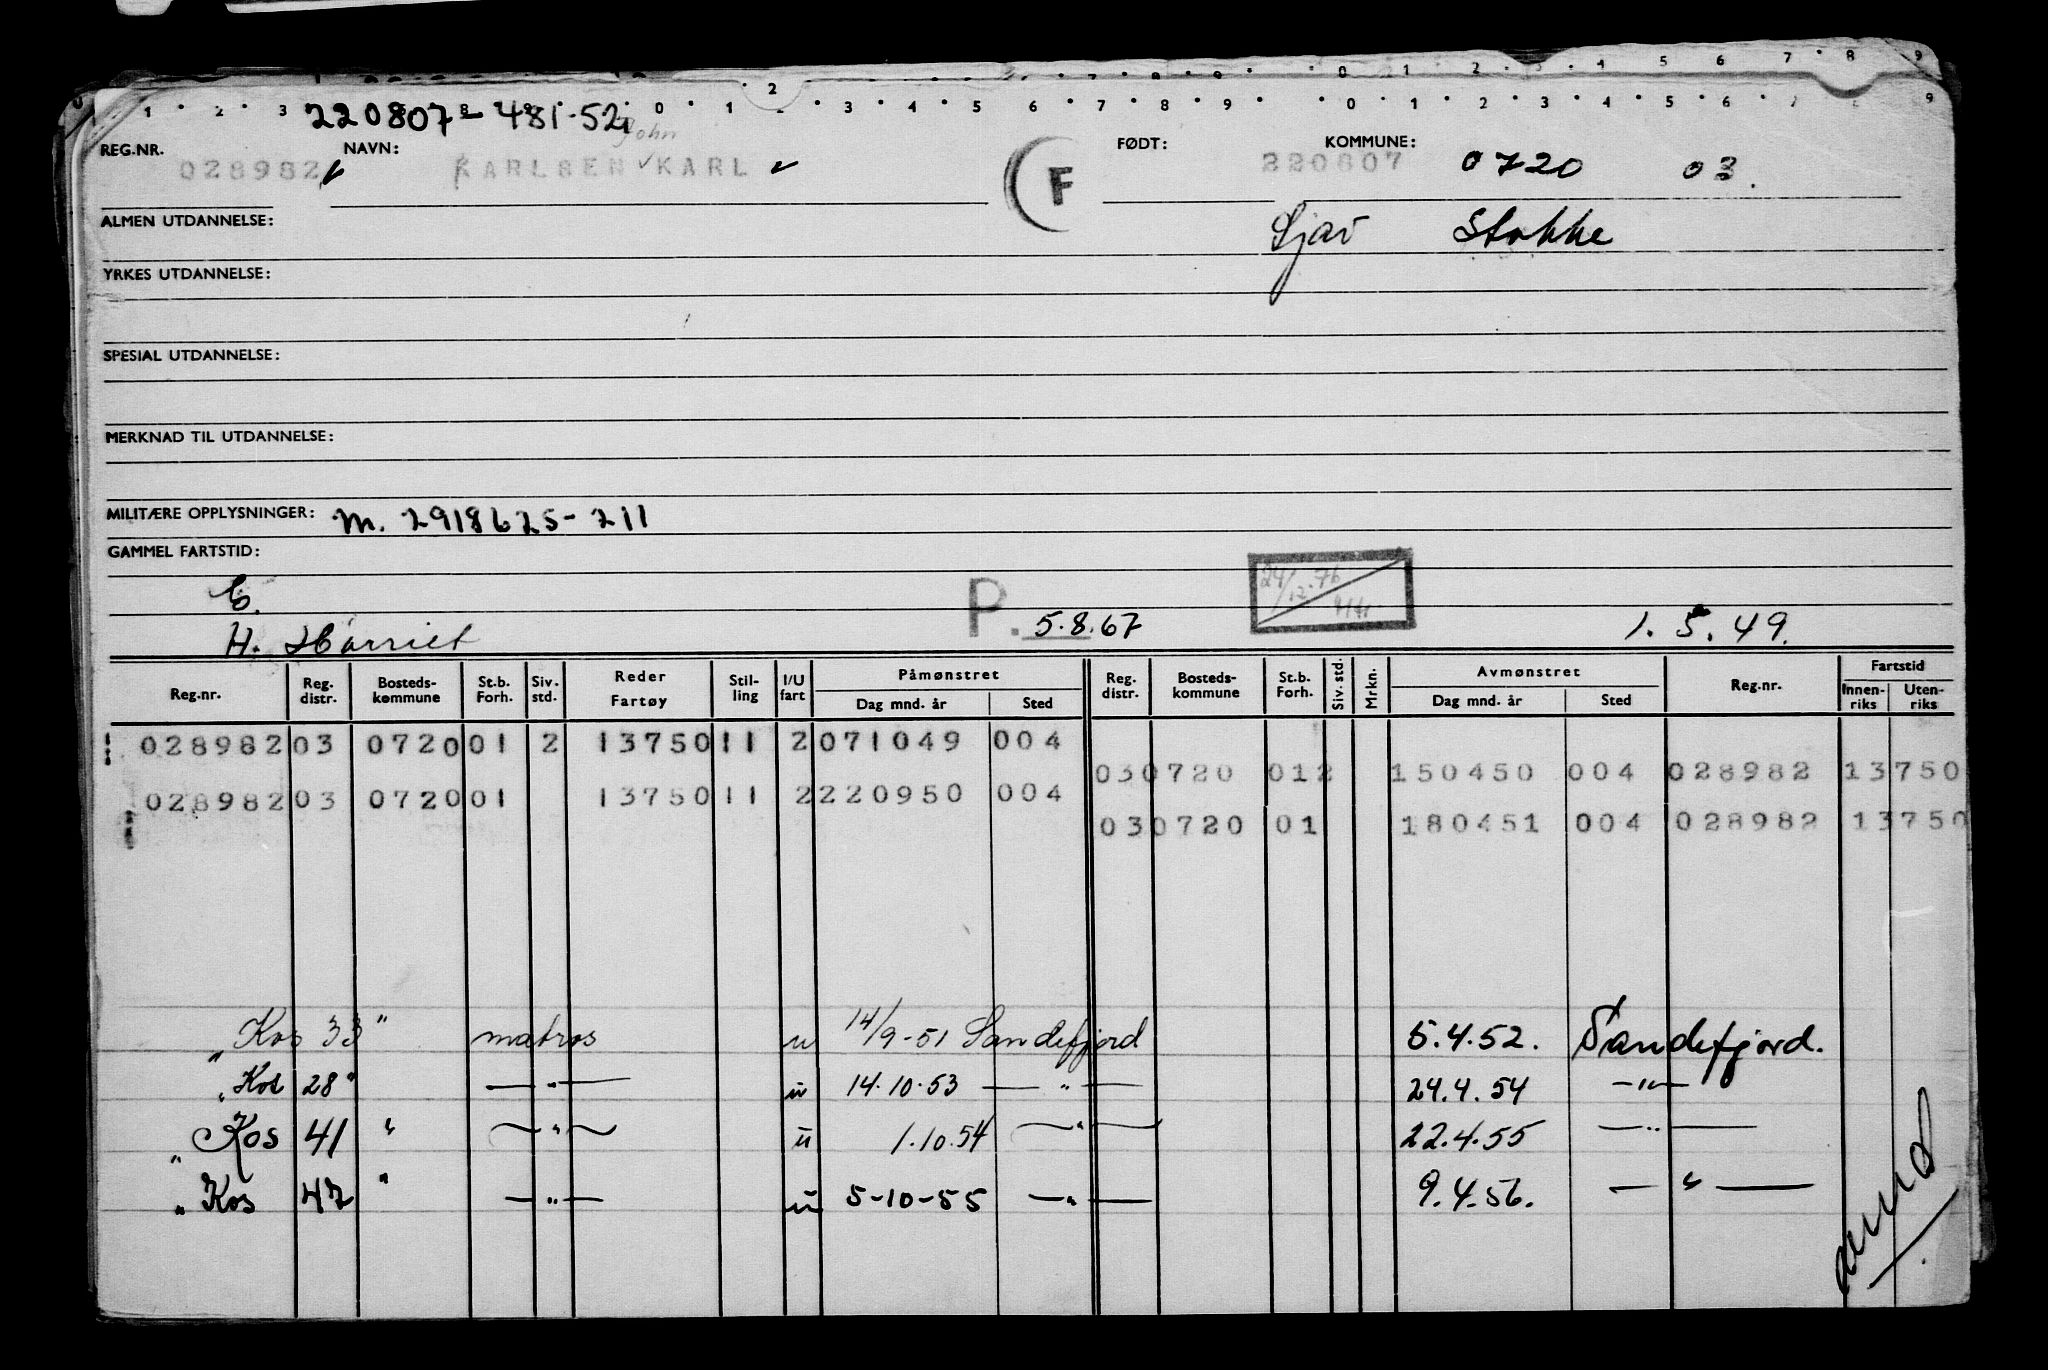 1 2 3 8 9 0 1 2 3 4 5 6 7 8 9 0 1 2 3 4 5 6 7 8 9
220807 - 481.52
John
REG.NR. NAVN: FØDT: KOMMUNE:
028982 KARLSEN KARL F 220807 0720 03.
ALMEN UTDANNELSE: Stokke
YRKES UTDANNELSE:
SPESIAL UTDANNELSE:
MERKNAD TIL UTDANNELSE:
MILITÆRE OPPLYSNINGER: M. 2918625-211
GAMMEL FARTSTID:
E. P. 5.8.67 24/12.76 1.5.49.
H. Harriet
Reg.nr. Reg. distr. Bosteds-kommune St.b. Forh. Siv. std. Reder Fartøy Stil-ling I/U fart Påmønstret Dag mnd. år Sted Reg. distr. Bosteds-kommune St.b. Forh. Siv. std. Mrkn. Avmønstret Dag mnd. år Sted Reg.nr. Fartstid Innen-riks Uten-riks
028982 03 0720 01 2 13750 11 2 071049 004
03 0720 01 2 150450 004 028982 13750
028982 03 0720 01 13750 11 2 220950 004
03 0720 01 180451 004 028982 13750
„ Kos 33 " matros u 14/9-51 Sandefjord 5.4.52. Sandefjord.
„ Kos 28 " — " — u 14.10.53 — " — 24.4.54 — " —
„ Kos 41 " — " — u 1.10.54 — " — 22.4.55 — " —
„ Kos 47 " — " — u 5-10-55 — " — 9.4.56. — " —